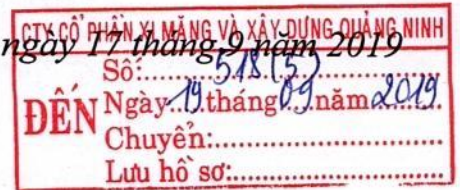 CTY CỔ PHẦN XI MĂNG VÀ XÂY DỰNG QUẢNG NINH
ngày 17 tháng 9 năm 2019
Số:.......518(5)..........
ĐẾN
Ngày..19.tháng 09.năm 2019
Chuyển:...........................
Lưu hồ sơ:.........................